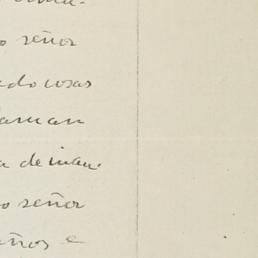 o señor
do cosas
laman
a de man-
o señor
eños e